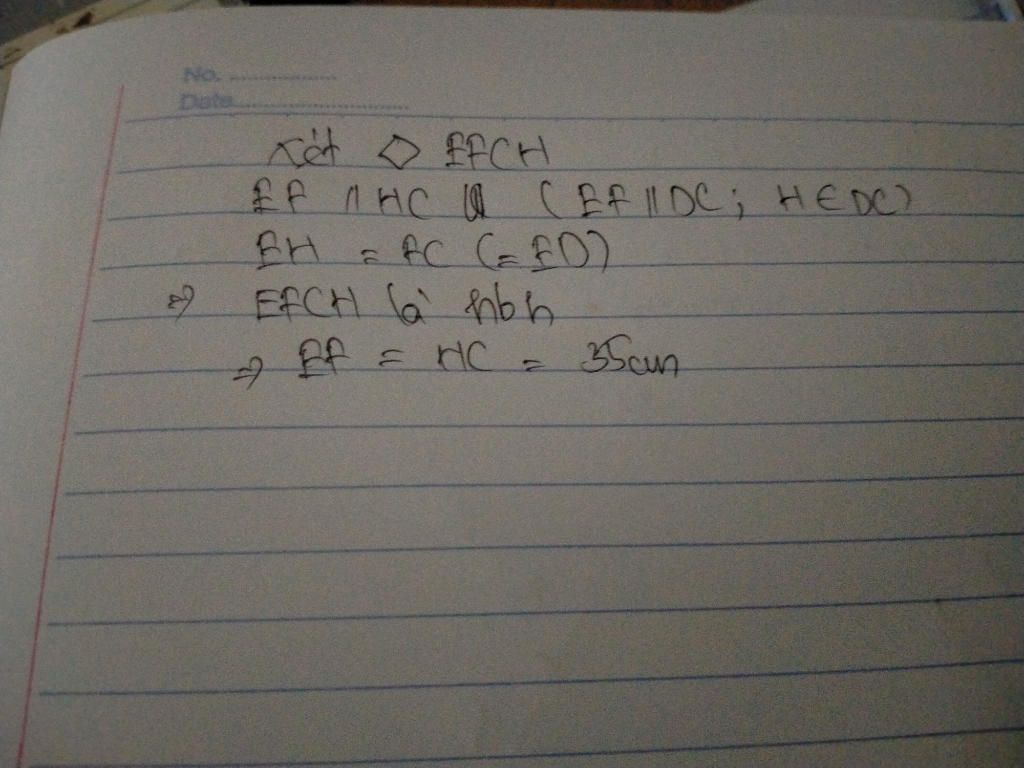 No. ..................
Date..............................
Xét ◇ EFCH
EF // HC (EF // DC; H ∈ DC)
EH = FC (= ED)
=> EFCH là hbh
=> EF = HC = 35cm